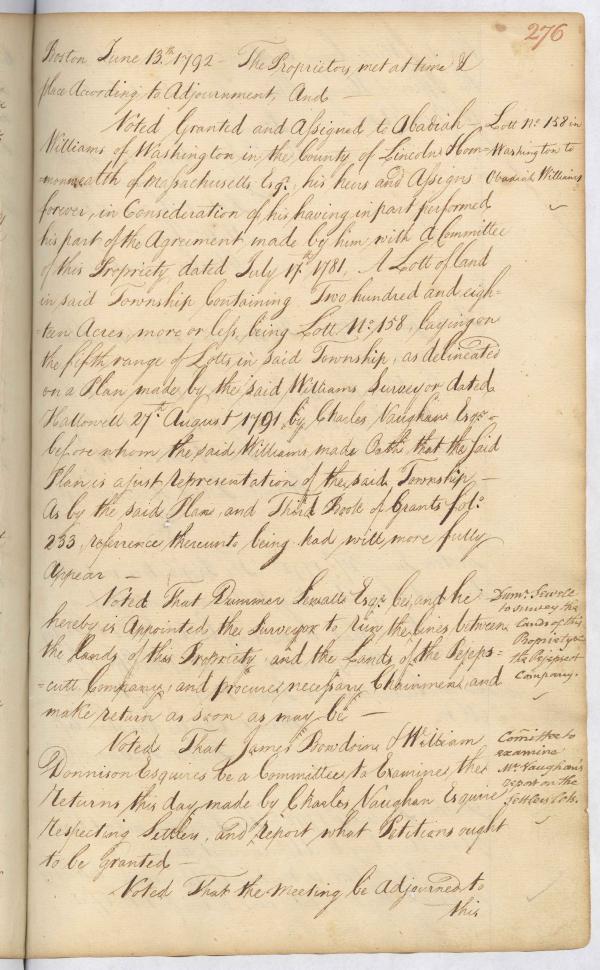 276
Boston June 13.th 1792 - The Proprietors met at time &
place According to Adjournment, And -
Voted Granted and Assigned to Obadiah -
Williams of Washington in the County of Lincoln Com=
=monwealth of Massachusetts Esq.r, his heirs and Assigns
forever, in Consideration of his having in part performed
his part of the Agreement made by him with A Committee
of this Propriety dated July 17.th 1781, A Lott of Land
in said Township Containing Two hundred and eigh-
=teen Acres, more or less, being Lott No. 158, laying on
the fifth range of Lotts in said Township, as delineated
on a Plan made by the said Williams Surveyor dated
Hallowell 27.th August 1791, by Charles Vaughan Esq.r -
before whom the said Williams made Oath that the said
Plan is a just representation of the said Township -
As by the said Plan, and Third Book of Grants fol.o
233, reference thereunto being had will more fully
Appear -
Lott No. 158 in
Washington to
Obadiah Williams
Voted That Dummer Sewall Esq.r be, and he
hereby is Appointed the Surveyor to run the lines between
the Lands of this Propriety and the Lands of the Pejeps=
=cutt Company, and procure necessary Chainmen, and
make return as soon as may be -
Dumr. Sewall
to survey the
Lands of this
Propriety &
the Pejepscot
Company.
Voted That James Bowdoin & William
Donnison Esquires be a Committee to Examine the
Returns this day made by Charles Vaughan Esquire
Respecting Settlers, and Report what Petitions ought
to be Granted -
Comittee to
examine
Mr. Vaughan's
report on the
Settlers Lots.
Voted That the meeting be Adjourned to
this